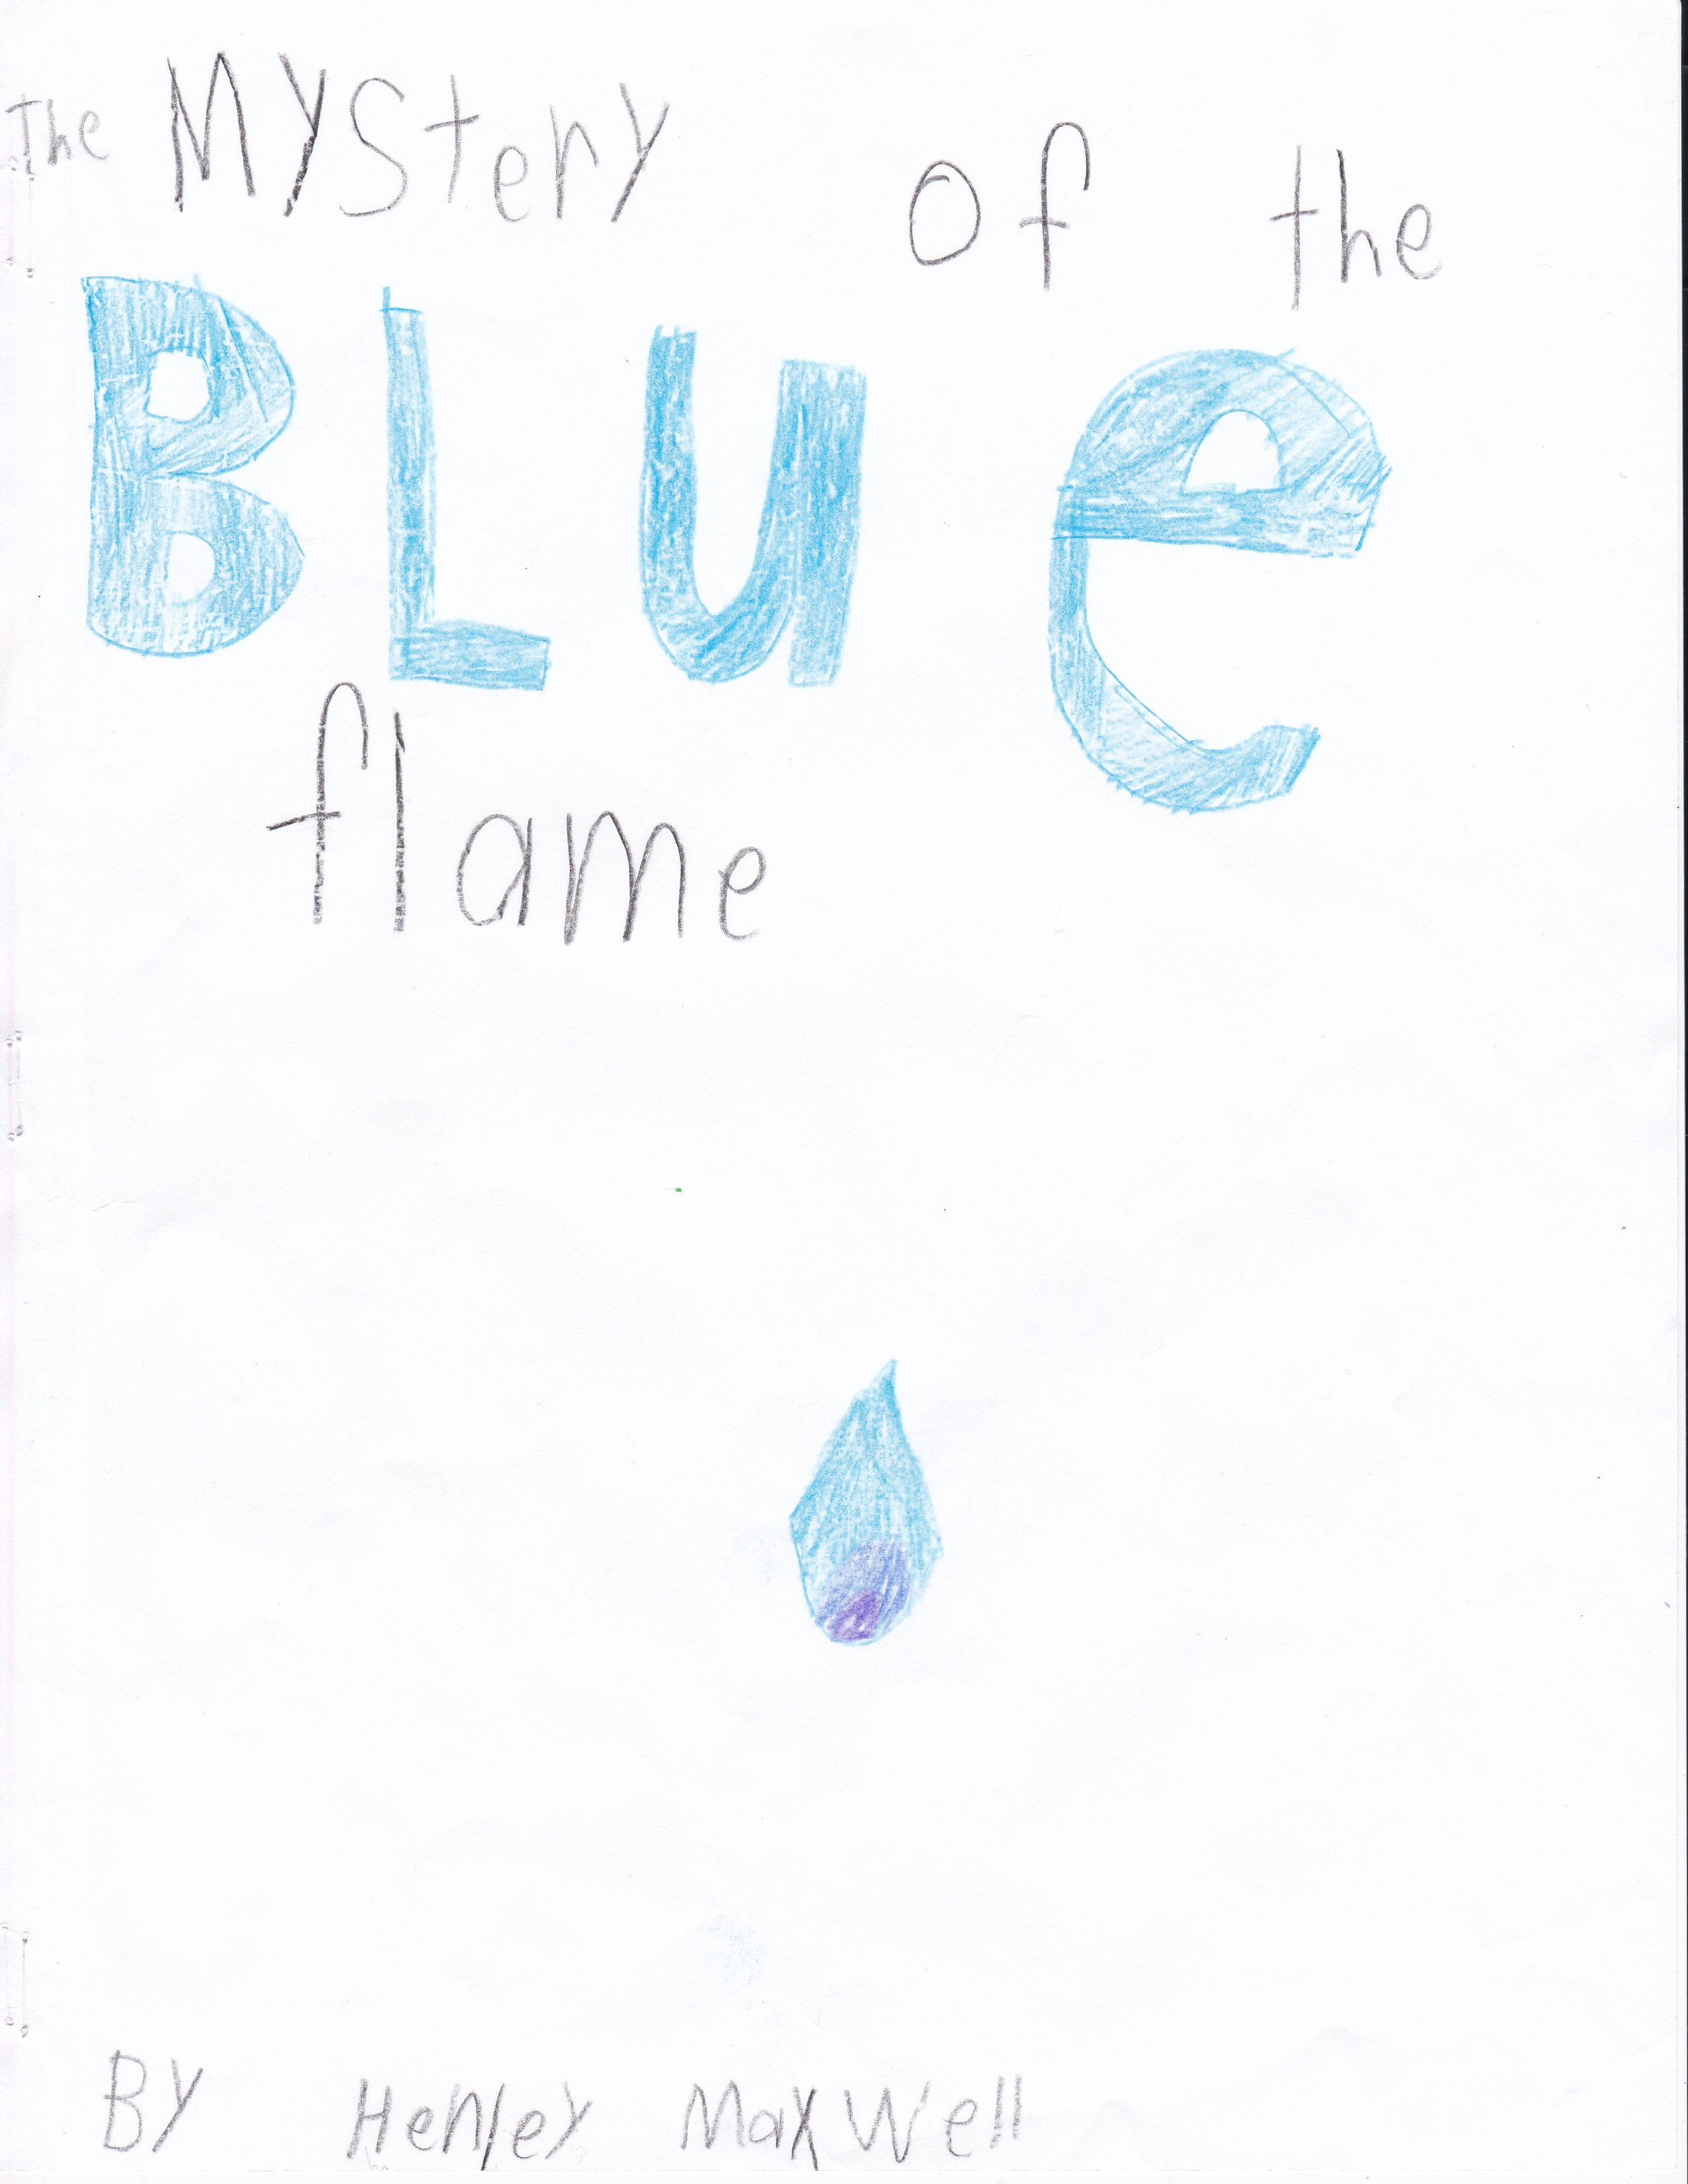 The Mystery of the
BLue
flame
By Henley Maxwell